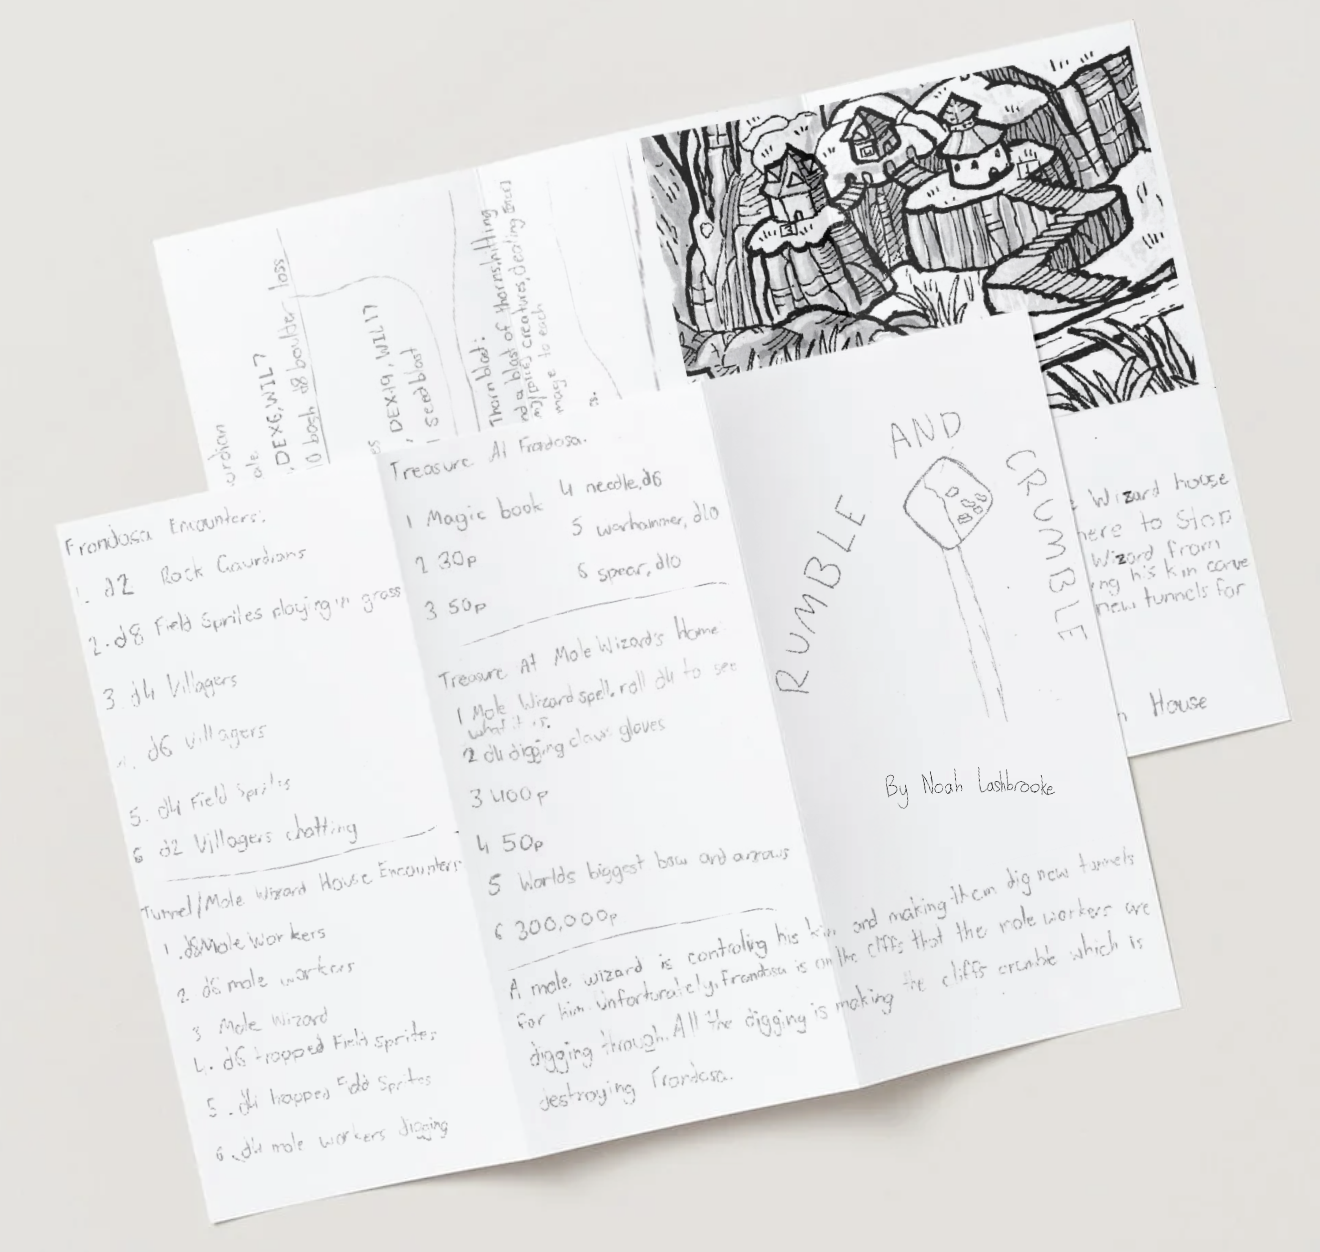 Frondosa Encounters:
1. d2 Rock Gaurdians
2. d8 Field Sprites playing in grass
3 d4 Villagers
4. d6 villagers
5. d4 Field Sprites
6 d2 Villagers chatting
Tunnel/Mole Wizard House Encounters
1 .d8 Mole Workers
2. d6 mole workers
3 Mole Wizard
4. d6 trapped Field sprites
5 .d4 trapped Field Sprites
6. d4 mole workers digging
Treasure At Frodosa.
1 Magic book
2 30p
3 50p
4 needle, d6
5 warhammer, d10
6 spear, d10
Treasure At Mole Wizard's Home
1 Mole Wizard spell, roll d4 to see
what it is.
2 d4 digging claw gloves
3 400p
4 50p
5 Worlds biggest bow and arrows
6 300,000p
A mole wizard is controling his kin and making them dig new tunnels
for him. unfortunately, Frondosa is on the cliffs that the mole workers are
digging through. All the digging is making the cliffs crumble which is
destroying Frondosa.
RUMBLE
AND
CRUMBLE
By Noah Lashbrooke
urdian
ale.
, DEX6, WIL7
10 bash d8 boulter loss
, DEX19, WIL17
, 1 seed blast
Thorn blast:
a blast of thorns, hitting
creatures, dealing
mage to each
Wizard house
here to Stop
Wizard from
ng his kin carve
new tunnels for
House